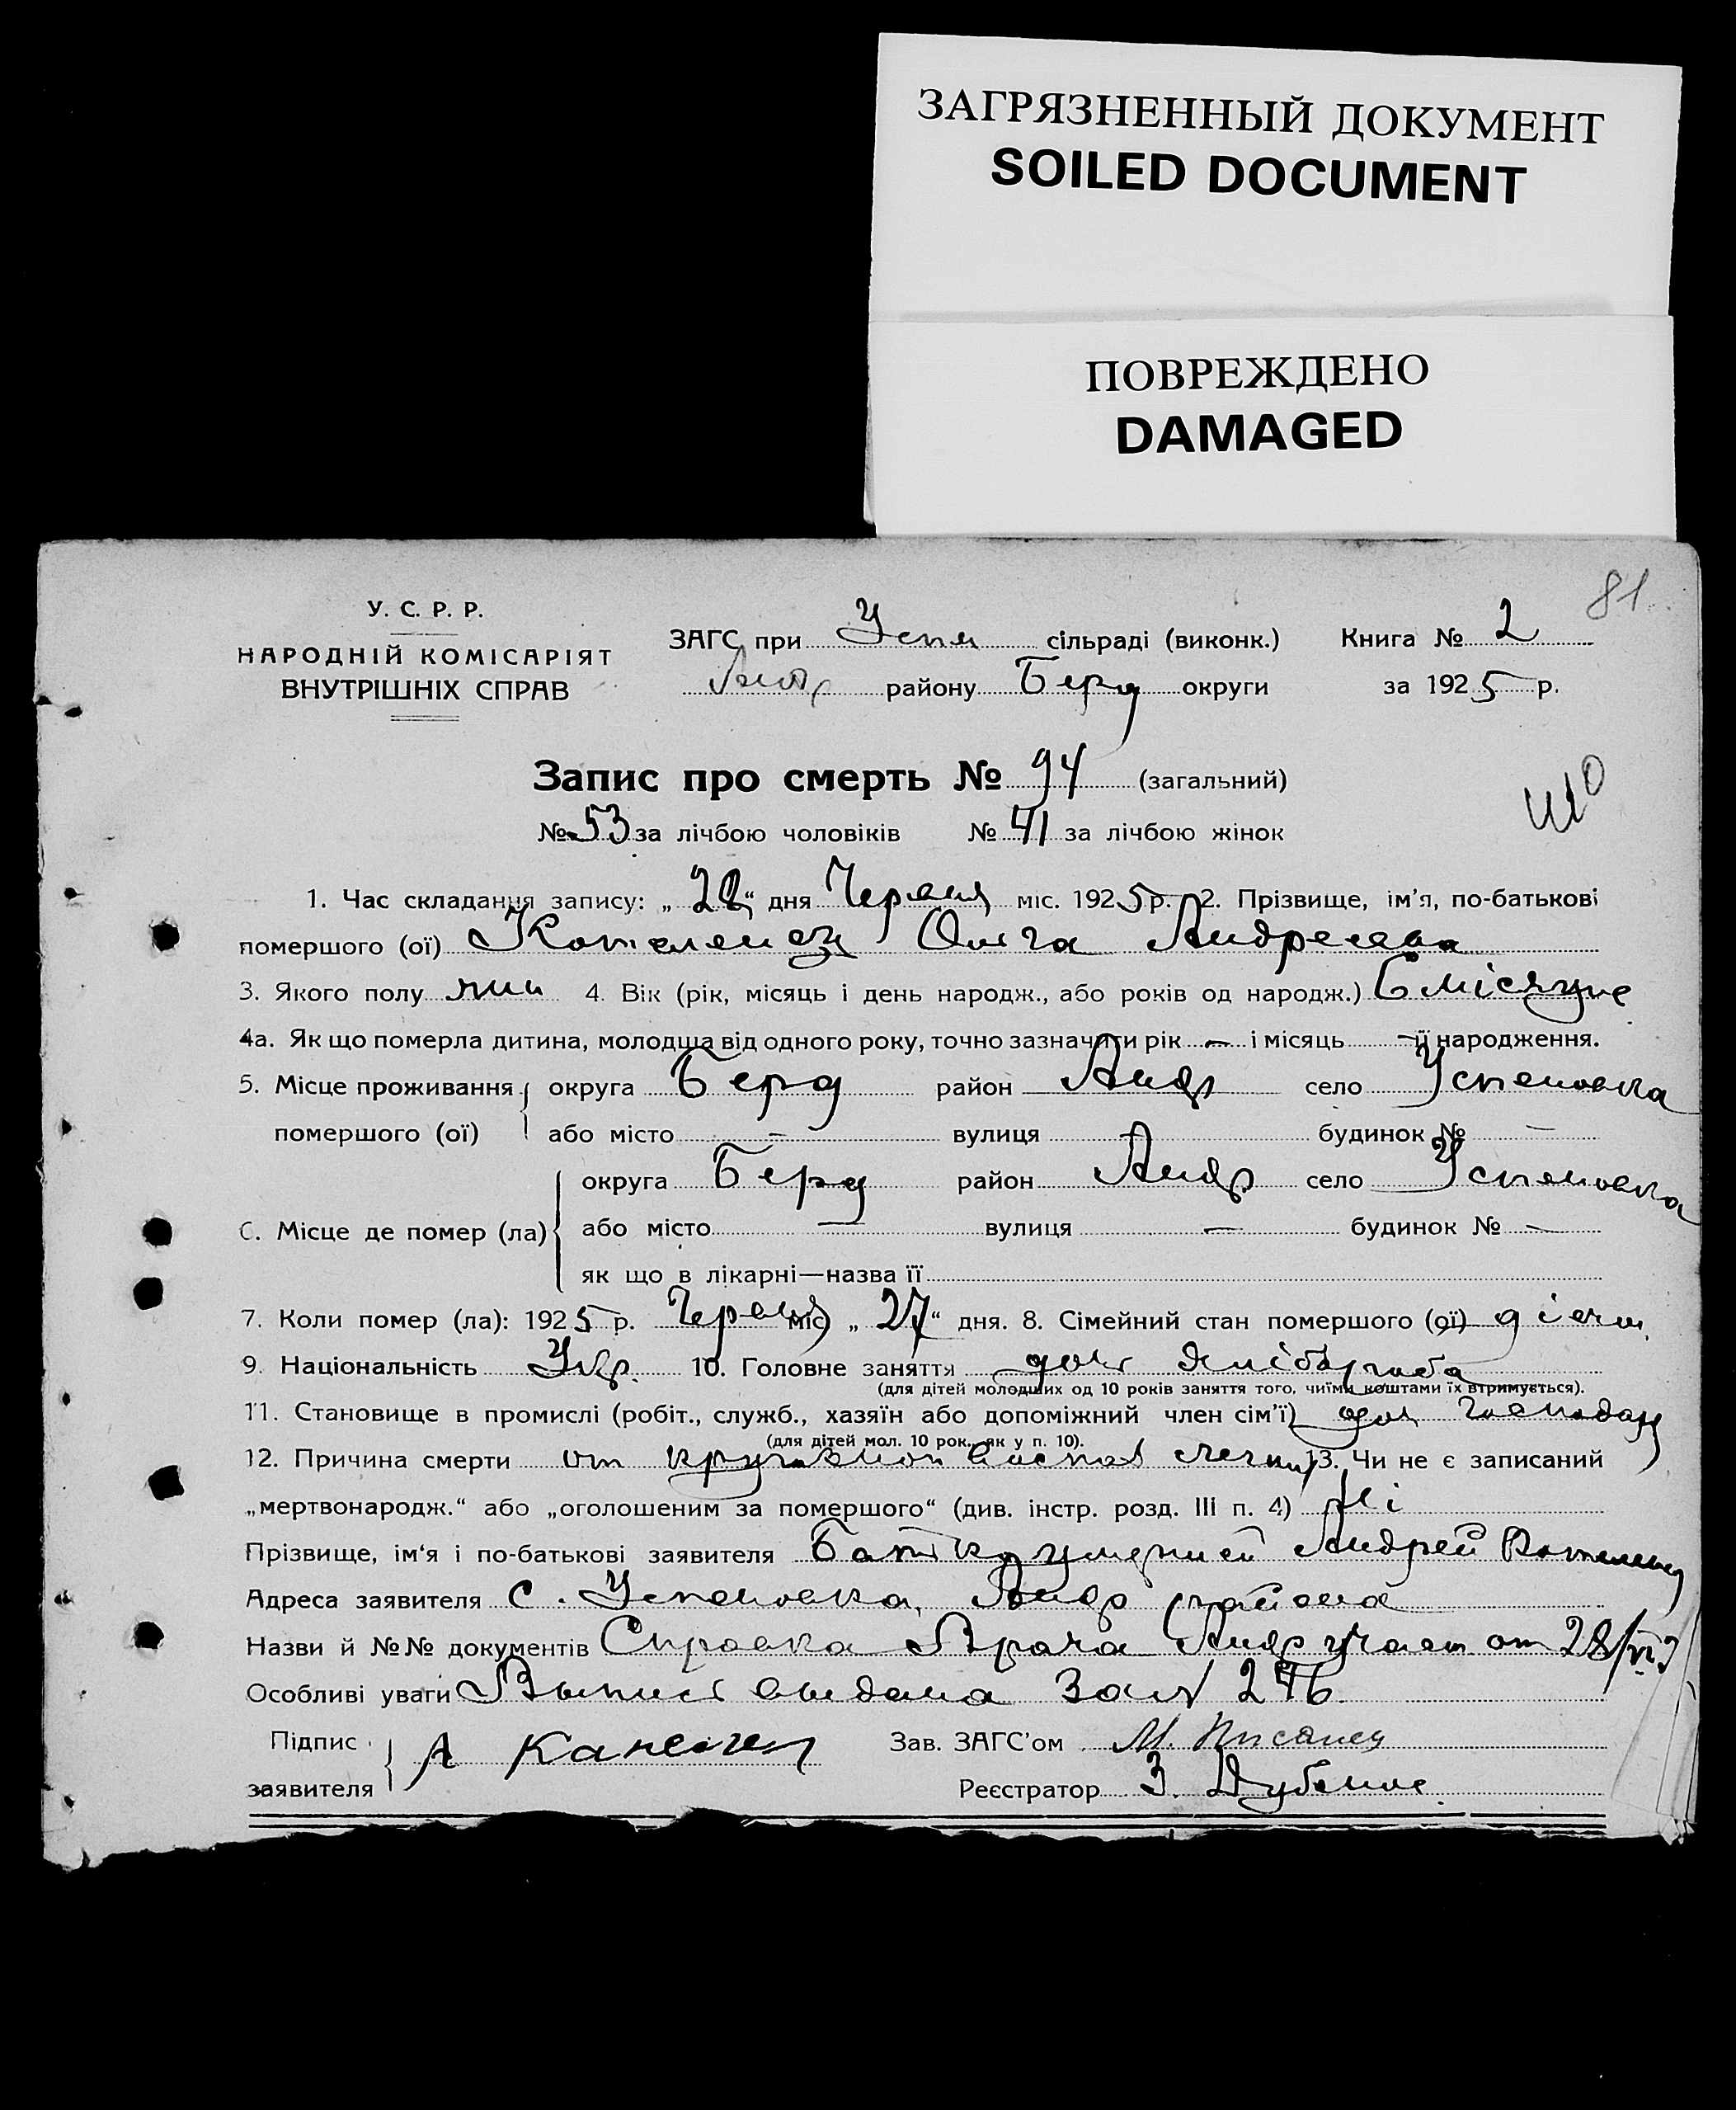 ЗАГРЯЗНЕННЫЙ ДОКУМЕНТ
SOILED DOCUMENT
ПОВРЕЖДЕНО
DAMAGED
81
У. С. Р. Р.
НАРОДНІЙ КОМІСАРІЯТ
ВНУТРІШНІХ СПРАВ
ЗАГС при Успн сільраді (виконк.) Книга № 2
Андр району Берд округи за 1925 р.
Запис про смерть № 94 (загальний)
№ 53 за лічбою чоловіків № 41 за лічбою жінок
1. Час складання запису: „28“ дня Червня міс. 1925 р. 2. Прізвище, ім'я, по-батькові
помершого (ої) Котеленец Ольга Андреевна
3. Якого полу жин 4. Вік (рік, місяць і день народж., або років од народж.) 6 місяцив
4а. Як що померла дитина, молодша від одного року, точно зазначити рік — і місяць — її народження.
5. Місце проживання округа Берд район Андр село Успеновка
помершого (ої) або місто — вулиця — будинок № —
округа Берд район Андр село Успеновка
6. Місце де помер (ла) або місто — вулиця — будинок № —
як що в лікарні—назва її
7. Коли помер (ла): 1925 р. Червня міс „27“ дня. 8. Сімейний стан помершого (ої)
9. Національність Укр. 10. Головне заняття доч хлібороба
(для дітей молодших од 10 років заняття того, чиїми коштами їх втримується).
11. Становище в промислі (робіт., служб., хазяїн або допоміжний член сім'ї) доч
(для дітей мол. 10 рок., як у п. 10).
12. Причина смерти от 13. Чи не є записаний
„мертвонародж.“ або „оголошеним за помершого“ (див. інстр. розд. III п. 4) Ні
Прізвище, ім'я і по-батькові заявителя Батько умершей Андрей Котеленец
Адреса заявителя с. Успеновка, Андр района
Назви й №№ документів Справка Врача Андр участ от 28/VI
Особливі уваги Выпись выдана За № 276
Підпис
заявителя А
Зав. ЗАГС'ом М. Писанец
Реєстратор З. Дубенко